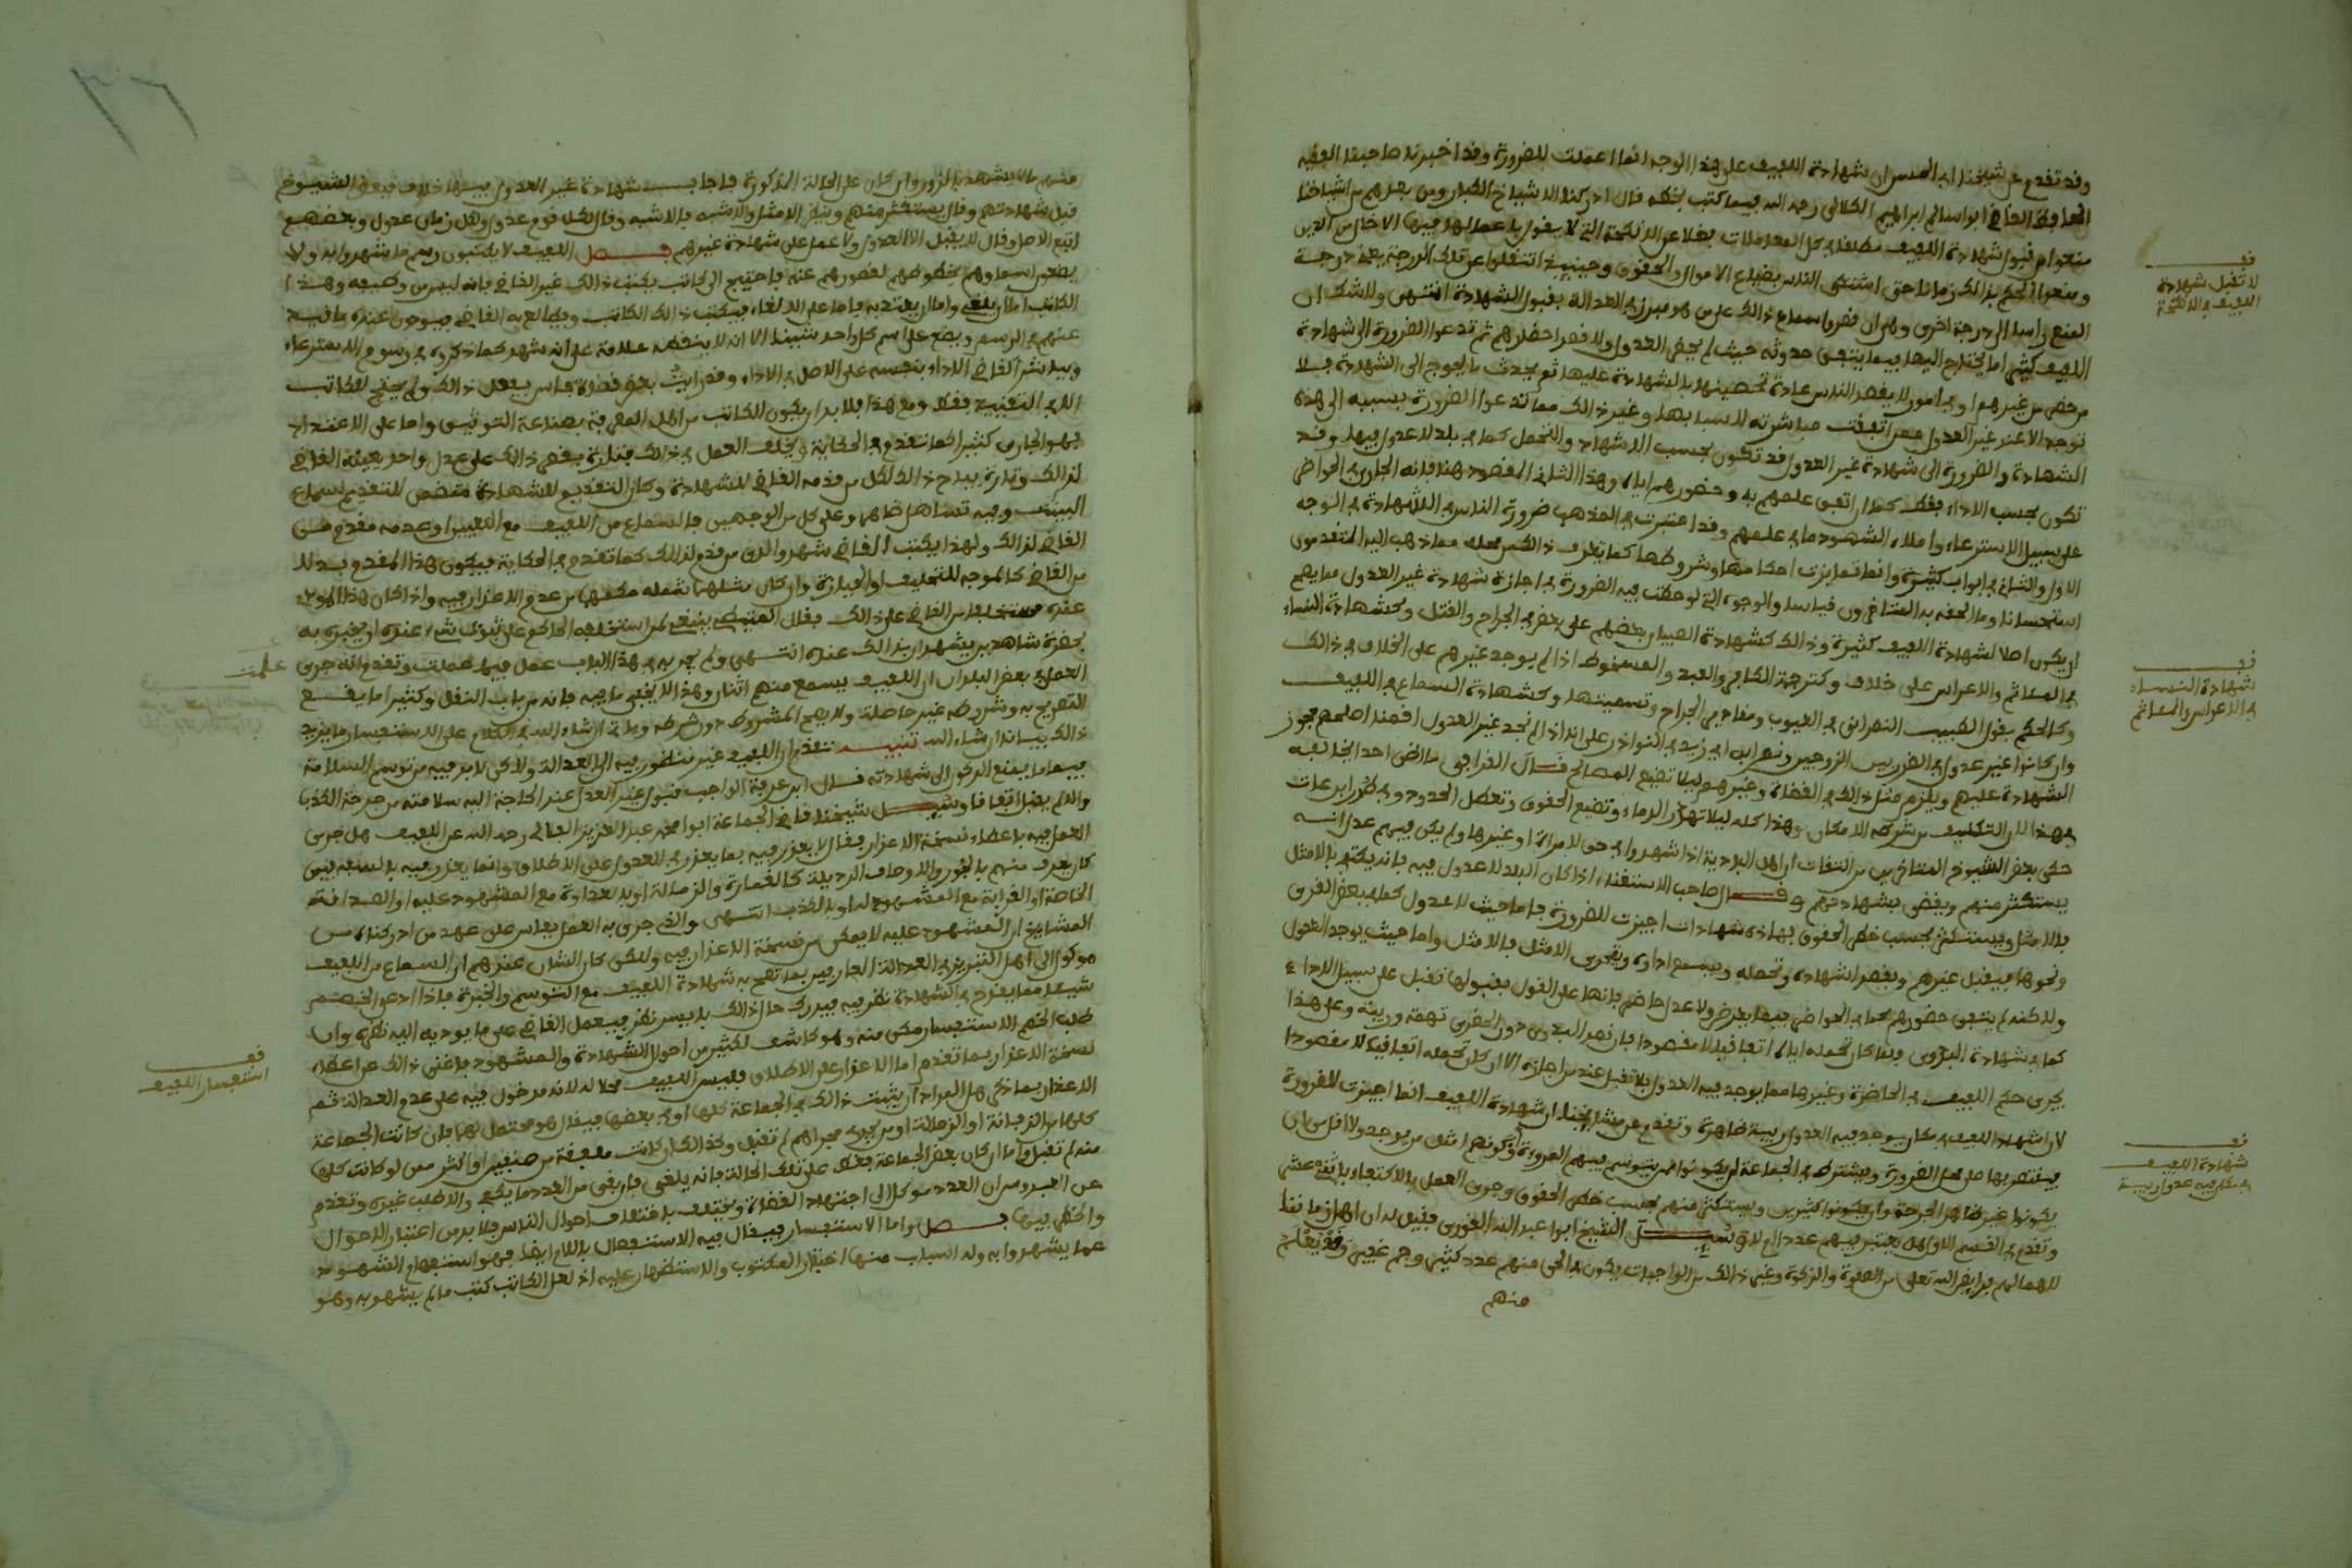 وقد تقدم عن شيخنا ابي الحسن ان شهادة اللفيف على هذا الوجه انما اعملت للضرورة وقد اخبرنا صاحبنا الفقيه
الحافظ القاضي ابو اسالم ابراهيم الكلالي رحمه الله فيما كتب بخطه قال ادركنا الاشياخ الكبار ومن بعدهم من اشياخنا
منعوا من قبول شهادة اللفيف مطلقا في كل المعاملات فضلا عن الانكحة التي لا يقول باعمالها فيها الا
ومنعوا الحكم بذلك زمانا حتى اشتكى الناس بضياع الاموال والحقوق وحينئذ انتقلوا عن تلك الدرجة يعني درجة
المنع راسا الى درجة اخرى وهي ان قصروا سماع ذلك على من هو مبرز في العدالة بقبول الشهادة انتهى ولا شك ان
اللفيف كثيرا ما يحتاج اليها فيما يتفق حدوثه حيث لم يحضر العدول ولا قصد احضارهم ثم تدعوا الضرورة الى شهادة
من حضر من غيرهم او في امور لا يقصد الناس عادة تحصينها بالشهادة عليها ثم يحدث ما يحوج الى الشهادة فلا
توجد الا عند غير العدول ممن اتفقت مباشرته للاسباب وغير ذلك مما تدعوا الضرورة بسببه الى هذه
الشهادة والضرورة الى شهادة غير العدول قد تكون بحسب الاشهاد والتحمل كما في بلد لا عدول فيها وقد
تكون بحسب الاداء فقط كما ان اتفق علمهم به وحضورهم اياه وهذا الثاني المقصود هنا فانه الجاري في الحواضر
على سبيل الاسترعاء واملاء الشهود ما في علمهم وقد اعتبرت في المذهب ضرورة الناس في الشهادة في الوجه
الاول والثاني في ابواب كثيرة وانما تمايزت احكامها وشروطها كما تعرف ذلك من محله مما ذهب اليه المتقدمون
استحسانا وما الحقه به المتاخرون قياسا والوجوه التي لوحظت فيه الضرورة في اجازة شهادة غير العدول مما يصح
ان يكون اصلا لشهادة اللفيف كثيرة وذلك كشهادة الصبيان بعضهم على بعض في الجراح والقتل وكشهادة النساء
في المئاتم والاعراس على خلاف وكترجمة الكافر والعبد والمسخوط اذا لم يوجد غيرهم على الخلاف في ذلك
وكالحكم بقول الطبيب النصراني في العيوب ومقادير الجراح وتسميتها وكشهادة السماع في اللفيف
وان كانوا غير عدول في الضرر بين الزوجين ونص ابن ابي زيد في النوادر على انه اذا لم نجد غير العدول اقمنا اصلحهم فجوز
الشهادة عليهم ويلزم مثل ذلك في القضاة وغيرهم ليلا تضيع المصالح قال القرافي ما اظن احدا يخالفه
في هذا لان التكليف من شرطه الامكان وهذا كله ليلا تهدر الدماء وتضيع الحقوق وتعطل الحدود وفي طرر ابن عات
حكى بعض الشيوخ المتاخرين من الثقات ان اهل البادية اذا شهدوا في حق لامراة او غيرها ولم يكن فيهم عدل انه
يستكثر منهم ويقضى بشهادتهم وقال صاحب الاستغناء اذا كان البلد لا عدول فيه فانه يكتفى بالامثل
بالامثل ويستكثر بحسب خطر الحقوق فهذه شهادات اجيزت للضرورة فاما حيث لا عدول كما في بعض القرى
ونحوها فيقبل غيرهم ويقصد اشهاده وتحمله ويسمع اداؤه ويتحرى الامثل فالامثل واما حيث يوجد العدول
ولاكنه لم يتفق حضورهم كما في الحواضر فيما يعرض ولا عدل حاضر فانها على القول بقبولها تقبل على سبيل الاداء
كما في شهادة البدوي وبما كان تحمله اياه اتفاقيا لا مقصودا فان قصد البدوي دون الحضري تهمة وريبة وعلى هذا
يجري حكم اللفيف في الحاضرة وغيرها مما يوجد فيه العدول فلا تقبل عند من اجازه الا ان كان تحمله اتفاقيا لا مقصودا
لان اشهاد اللفيف في مكان يوجد فيه العدول ريبة ظاهرة وتقدم عن مشايخنا ان شهادة اللفيف انما اجيزت للضرورة
فيقتصر بها على محل الضرورة ويشترط في الجماعة ان يكونوا ممن يتوسم فيهم المروءة وكونهم امثل من يوجد ولا اقل من ان
يكونوا غير ظاهر الجرحة وان يكونوا كثيرين ويستكثر منهم بحسب خطر الحقوق وجرى العمل بالاكتفاء باثني عشر
وتقدم في القسم الاول هل يعتبر فيهم عدد ام لا وسئل الشيخ ابوا عبد الله القوري فقيل له ان اهل زماننا
لاهمالهم فرايض الله تعالى من الصلوة والزكوة وغير ذلك من الواجبات يكون في الحي منهم عدد كثير وجم غفير وقد يعلم
منهم
فف
لا تقبل شهادة
اللفيف في الانكحة
فف
شهادة النساء
في الاعراس والمئاتم
فف
شهادة اللفيف
في مكان فيه عدول ريبة
منهم من لا يشهد بالزور وان كان على الحالة المذكورة فاجاب شهادة غير العدول فيها خلاف فبعض الشيوخ
قبل شهادتهم وقال يستكثر منهم وينظر الامثل والاشبه فالاشبه وقال لكل قوم عدول ولكل زمان عدول وبعضهم
اتبع الاصل وقال لا يقبل الا العدول ولا عمل على شهادة غيرهم فصل اللفيف لا يكتبون رسم ما شهدوا به ولا
يضعون اسماءهم بخطوطهم لقصورهم عنه فاحتيج الى كاتب يكتب ذلك غير القاضي فانه ليس من وظيفه وهذا
الكاتب اما ان يلغى واما ان يعتد به فاما على الالغاء فيكتب ذلك الكاتب ويطالع به القاضي فيؤدون عنده ما قيد
عنهم في الرسم ويضع على اسم كل واحد شيئا الا انه لا ينقصه علامة على انه شهد كما ذكروه في رسوم الاسترعاء
ويباشر القاضي الاداء بنفسه على الاصل في الاداء وقد رايت بعض قضاة فاس يفعل ذلك ولم يحتج للكاتب
الا في التقييد فقط ومع هذا فلا بد ان يكون الكاتب من اهل المعرفة بصناعة التوثيق واما على الاعتداد
فهو الجاري كثيرا كما تقدم في الحكاية ويختلف العمل في ذلك فتارة يقصر ذلك على عدل واحد يعينه القاضي
لذلك وتارة يباح ذلك لكل من قدمه القاضي للشهادة وكان التقديم للشهادة متضمن للتقديم لسماع
البينة وفيه تساهل ظاهر وعلى كل من الوجهين فالسماع من اللفيف مع التعيين او عدمه مقدم من
القاضي لذلك ولهذا يكتب القاضي شهدوا لدى من قدم لذلك كما تقدم في الحكاية فيكون هذا المقدم بدلا
من القاضي كالموجه للتحليف او الحيازة وان كان مثلهما فعله مكفيا من عدم الاعذار فيه واذا كان هذا المودى
عنده مستخلفا من القاضي على ذلك فقال المتيطي ينبغي لمن استخلفه الحاكم على ثبوت شيء عنده ان يخبره به
بحضرة شاهدين يشهدان بذلك عنده انتهى ولم يجر به في هذا الباب عمل فيما علمت وتقدم انه جرى
العمل في بعض البلدان ان اللفيف يسمع منهم اثنان وهذا لا يخفى ما فيه فانه من باب النقل وكثيرا ما يقع
التصريح به وشروطه غير حاصلة ولا يصح المشروط دون شرطه وياتي ان شاء الله في الكلام على الاستفسار ما يزيد
ذلك بيانا ان شاء الله تنبيه تقدم ان اللفيف غير منظور فيه الى العدالة ولاكن لا بد فيه من توسم السلامة
فيما ما يمنع الركون الى شهادته قال ابن عرفة الواجب قبول غير العدل عند الحاجة اليه سلامته من جرحة الكذب
والا لم يقبل اتفاقا وسئل شيخنا قاضي الجماعة ابوا محمد عبد العزيز الفلالي رحمه الله عن اللفيف هل جرى
العمل فيه باعطاء نسخة الاعذار فقال لا يعذر فيه بما يعذر في العدول على الاطلاق وانما يعذر فيه بالسفه البين
كان يعرف منهم بالفجور والاوصاف الرذيلة كالقمارة والزمالة او بالعداوة مع المشهود عليه او الصداقة
الخاصة او القرابة مع المشهود له او بالكذب انتهى والذي جرى به العمل بفاس على عهد من ادركناه من
المشايخ ان المشهود عليه لا يمكن من نسخة الاعذار فيه ولكن كان الشان عندهم ان السماع من اللفيف
موكول الى اهل التبريز في العدالة العارفين بما تصح به شهادة اللفيف مع التوسم والخبرة فاذا ادعى الخصم
شيئا مما يقدح في الشهادة نظر فيه فيدرك حال ذلك بايسر نظر فيعمل القاضي على ما يوديه اليه نظره وان
طلب الخصم الاستفسار مكن منه وهو كاشف لكثير من احوال الشهادة والمشهود فاغنى ذلك عن اعطاء
نسخة الاعذار بما تقدم اما الاعذار على الاطلاق فليس اللفيف محلا له لانه مدخول فيه على عدم العدالة ثم
الاعذار بما ذكر هل المراد ان يثبت ذلك في الجماعة كلها او في بعضها فيقال هو محتمل لهما فان كانت الجماعة
كلها من الزفانة او الزمالة او من يجري مجراهم لم تقبل وكذلك ان كانت ملفقة من صنفين او اكثر ممن لو كانت كلها
منه لم تقبل واما ان كان بعض الجماعة فقط على تلك الحالة فانه يلغى فان بقى من العدد ما يكفي والا طلب غيره وتقدم
عن العبدوسي ان العدد موكل الى اجتهاد القضاة ويختلف باختلاف احوال الناس فلا بد من اعتبار الاحوال
والخطر فيها فصل واما الاستفسار فيقال فيه الاستفصال باللام ايضا فهو استفهام الشهود
عما يشهدوا به وله اسباب منها اختبار المكتوب والاستظهار عليه اذ لعل الكاتب كتب ما لم يشهد به وهو
علمت
فف
استفسار اللفيف